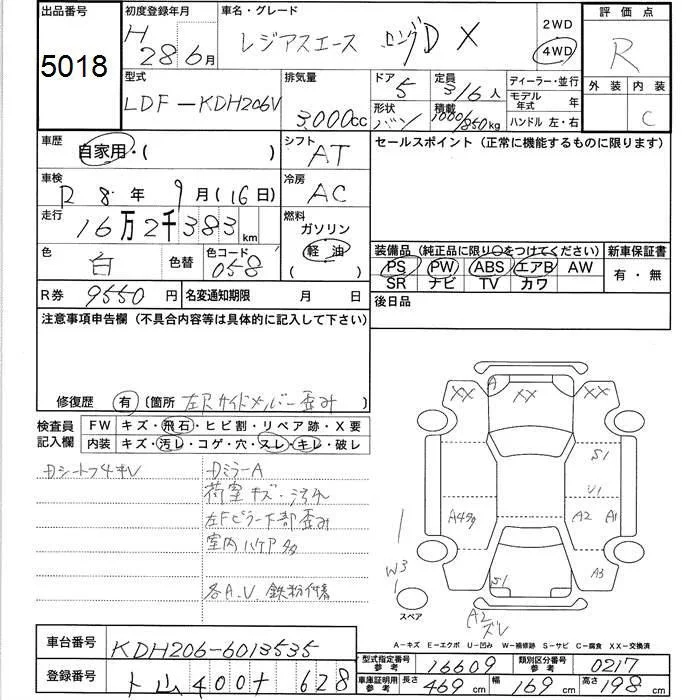 出品番号 初度登録年月 車名・グレード 2WD 評価点
5018 H 28年6月 レジアスエース ロングDX 4WD R
型式 排気量 ドア 定員 ディーラー・並行 外装 内装
LDF-KDH206V 3,000cc 5 3/6人 モデル年式 年 C
形状 バン 積載 1000/850kg ハンドル 左・右
車歴 自家用・( ) シフト AT セールスポイント(正常に機能するものに限ります)
車検 R 8年 9月(16日) 冷房 AC
走行 16万2千383km 燃料 ガソリン
色 白 色替 色コード 058 軽油 ( )
装備品(純正品に限り○をつけてください) 新車保証書
PS PW ABS エアB AW 有・無
SR ナビ TV カワ
R券 9550円 名変通知期限 月 日 後日品
注意事項申告欄(不具合内容等は具体的に記入して下さい)
修復歴 有 〔箇所 左Rサイドメンバー歪み
検査員記入欄 FW キズ・飛石・ヒビ割・リペア跡・X要
内装 キズ・汚レ・コゲ・穴・スレ・キレ・破レ
DミラーA
荷室キズ・
左Fピラー下部歪み
室内
各A.U 鉄粉付着
A
XX XX XX
S1
U1
A2 A1
A3
S1
W3
スペア
A2
ズレ
A-キズ E-エクボ U-凹み W-補修跡 S-サビ C-腐食 XX-交換済
車台番号 KDH206-6013535
登録番号 400 628
型式指定番号参考 16609 類別区分番号参考 0217
車庫証明用参考 長さ 469cm 幅 169cm 高さ 198cm